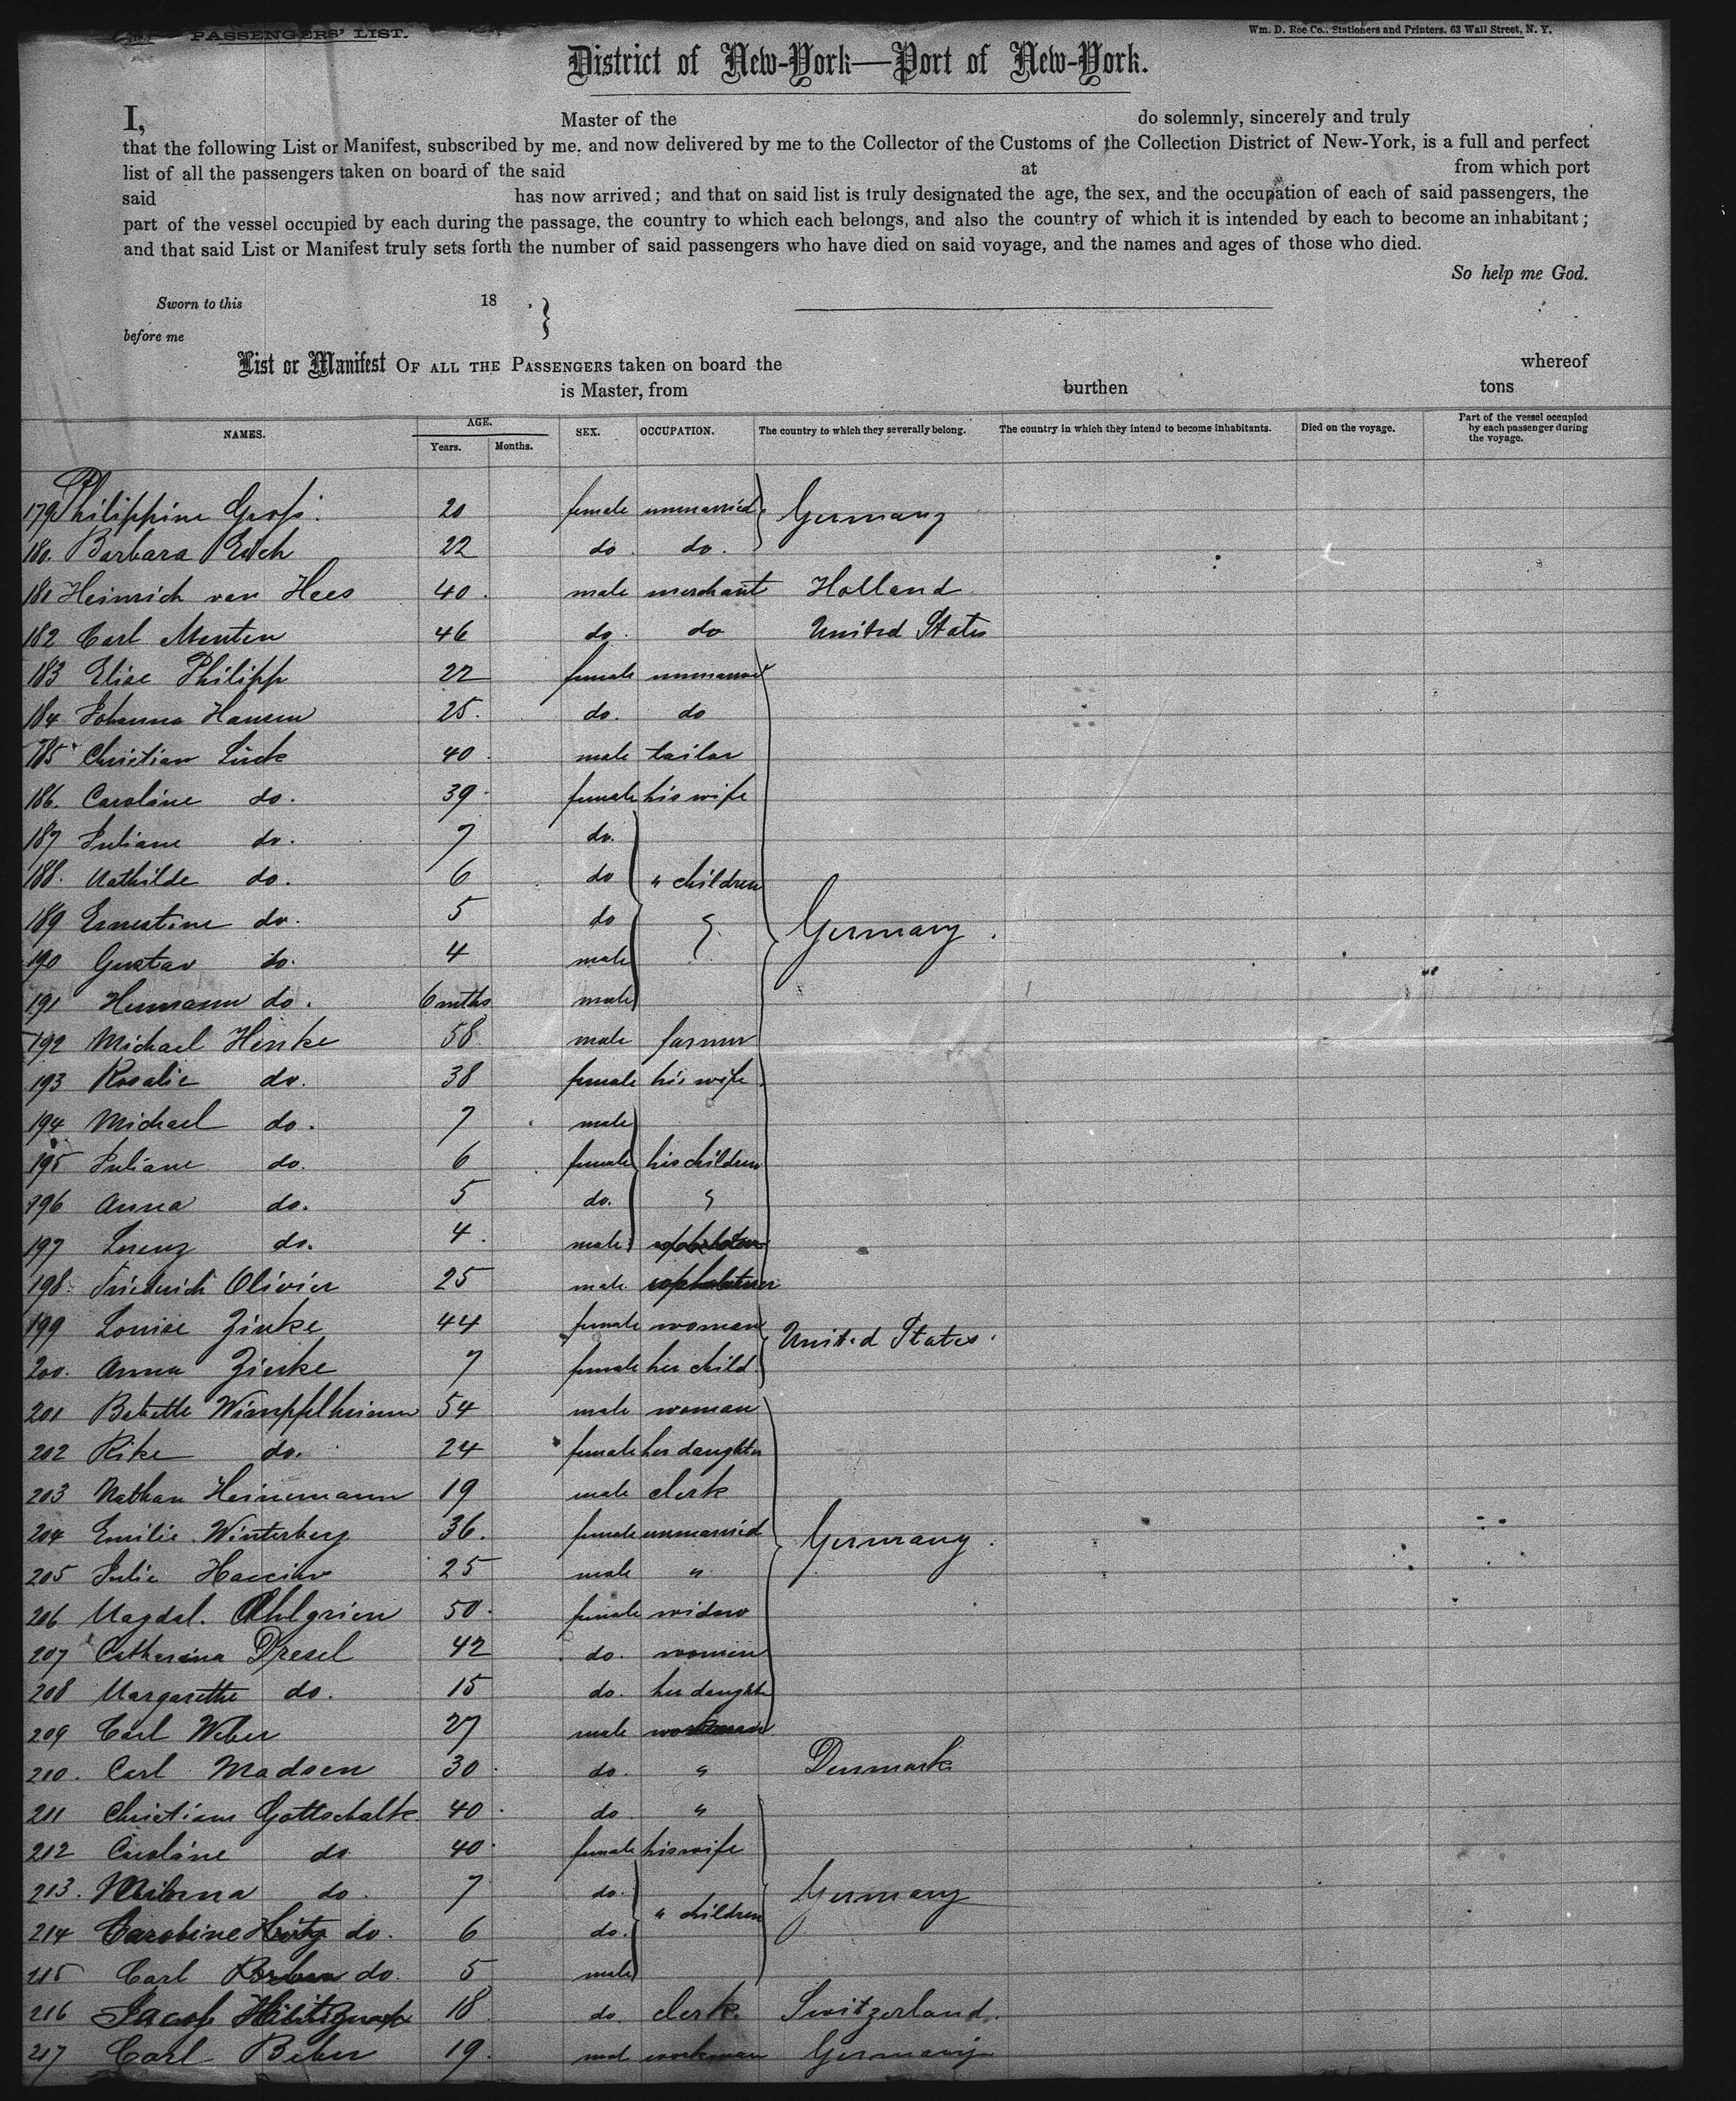 PASSENGERS' LIST.
Wm. D. Roe Co., Stationers and Printers. 63 Wall Street, N. Y.
District of New-York—Port of New-York.
I, Master of the do solemnly, sincerely and truly
that the following List or Manifest, subscribed by me, and now delivered by me to the Collector of the Customs of the Collection District of New-York, is a full and perfect
list of all the passengers taken on board of the said at from which port
said has now arrived; and that on said list is truly designated the age, the sex, and the occupation of each of said passengers, the
part of the vessel occupied by each during the passage, the country to which each belongs, and also the country of which it is intended by each to become an inhabitant;
and that said List or Manifest truly sets forth the number of said passengers who have died on said voyage, and the names and ages of those who died.
So help me God.
Sworn to this 18 .
before me
List or Manifest OF ALL THE PASSENGERS taken on board the whereof
is Master, from burthen tons
NAMES. AGE. Years. Months. SEX. OCCUPATION. The country to which they severally belong. The country in which they intend to become inhabitants. Died on the voyage. Part of the vessel occupied by each passenger during the voyage.
179 Philippine Groß. 20 female unmarried Germany
180. Barbara 22 do do.
181 Heinrich van Hees 40. male merchant Holland
182 Carl Menten 46 do. do United States
183 Elise Philipp 22 female unmarried
184 Johanna Hansen 25. do. do
185 Christian Lück 40. male tailor
186. Caroline do. 39 female his wife
187 Juliane do. 7 do.
188. Mathilde do. 6 do " children
189 Ernestine do. 5 do Germany.
190 Gustav do. 4 male
191 Hermann do. 6 mths male
192 Michael Henke 58 male farmer
193 Rosalie do. 38 female his wife
194 Michael do. 7 male
195 Juliane do. 6 female his children
196 Anna do. 5 do. "
197 Lorenz do. 4. male
198. Friederich Olivier 25 male
199 Louise Zinke 44 female woman United States.
200. Anna Zierke 7 female her child
201 Babette Wimpfelheimer 54 male woman
202 Rike do. 24 female her daughter
203 Nathan Heinemann 19 male clerk
204 Emilie Winterberg 36. female unmarried Germany.
205 Julie 25 male "
206 Magdal. Ahlgrien 50. female widow
207 Catharina Dresel 42 do. women
208 Margarethe do. 15 do. her daughter
209 Carl Weber 27 male workman
210. Carl Madsen 30. do. " Denmark
211 Christian Gottschalk 40. do "
212 Caroline do 40. female his wife
213. do. 7 do. Germany
214 Caroline do. 6 do. " children
215 Carl do. 5 male
216 Jacob 18 do. clerk. Switzerland.
217 Carl Beber 19. mal workman Germany